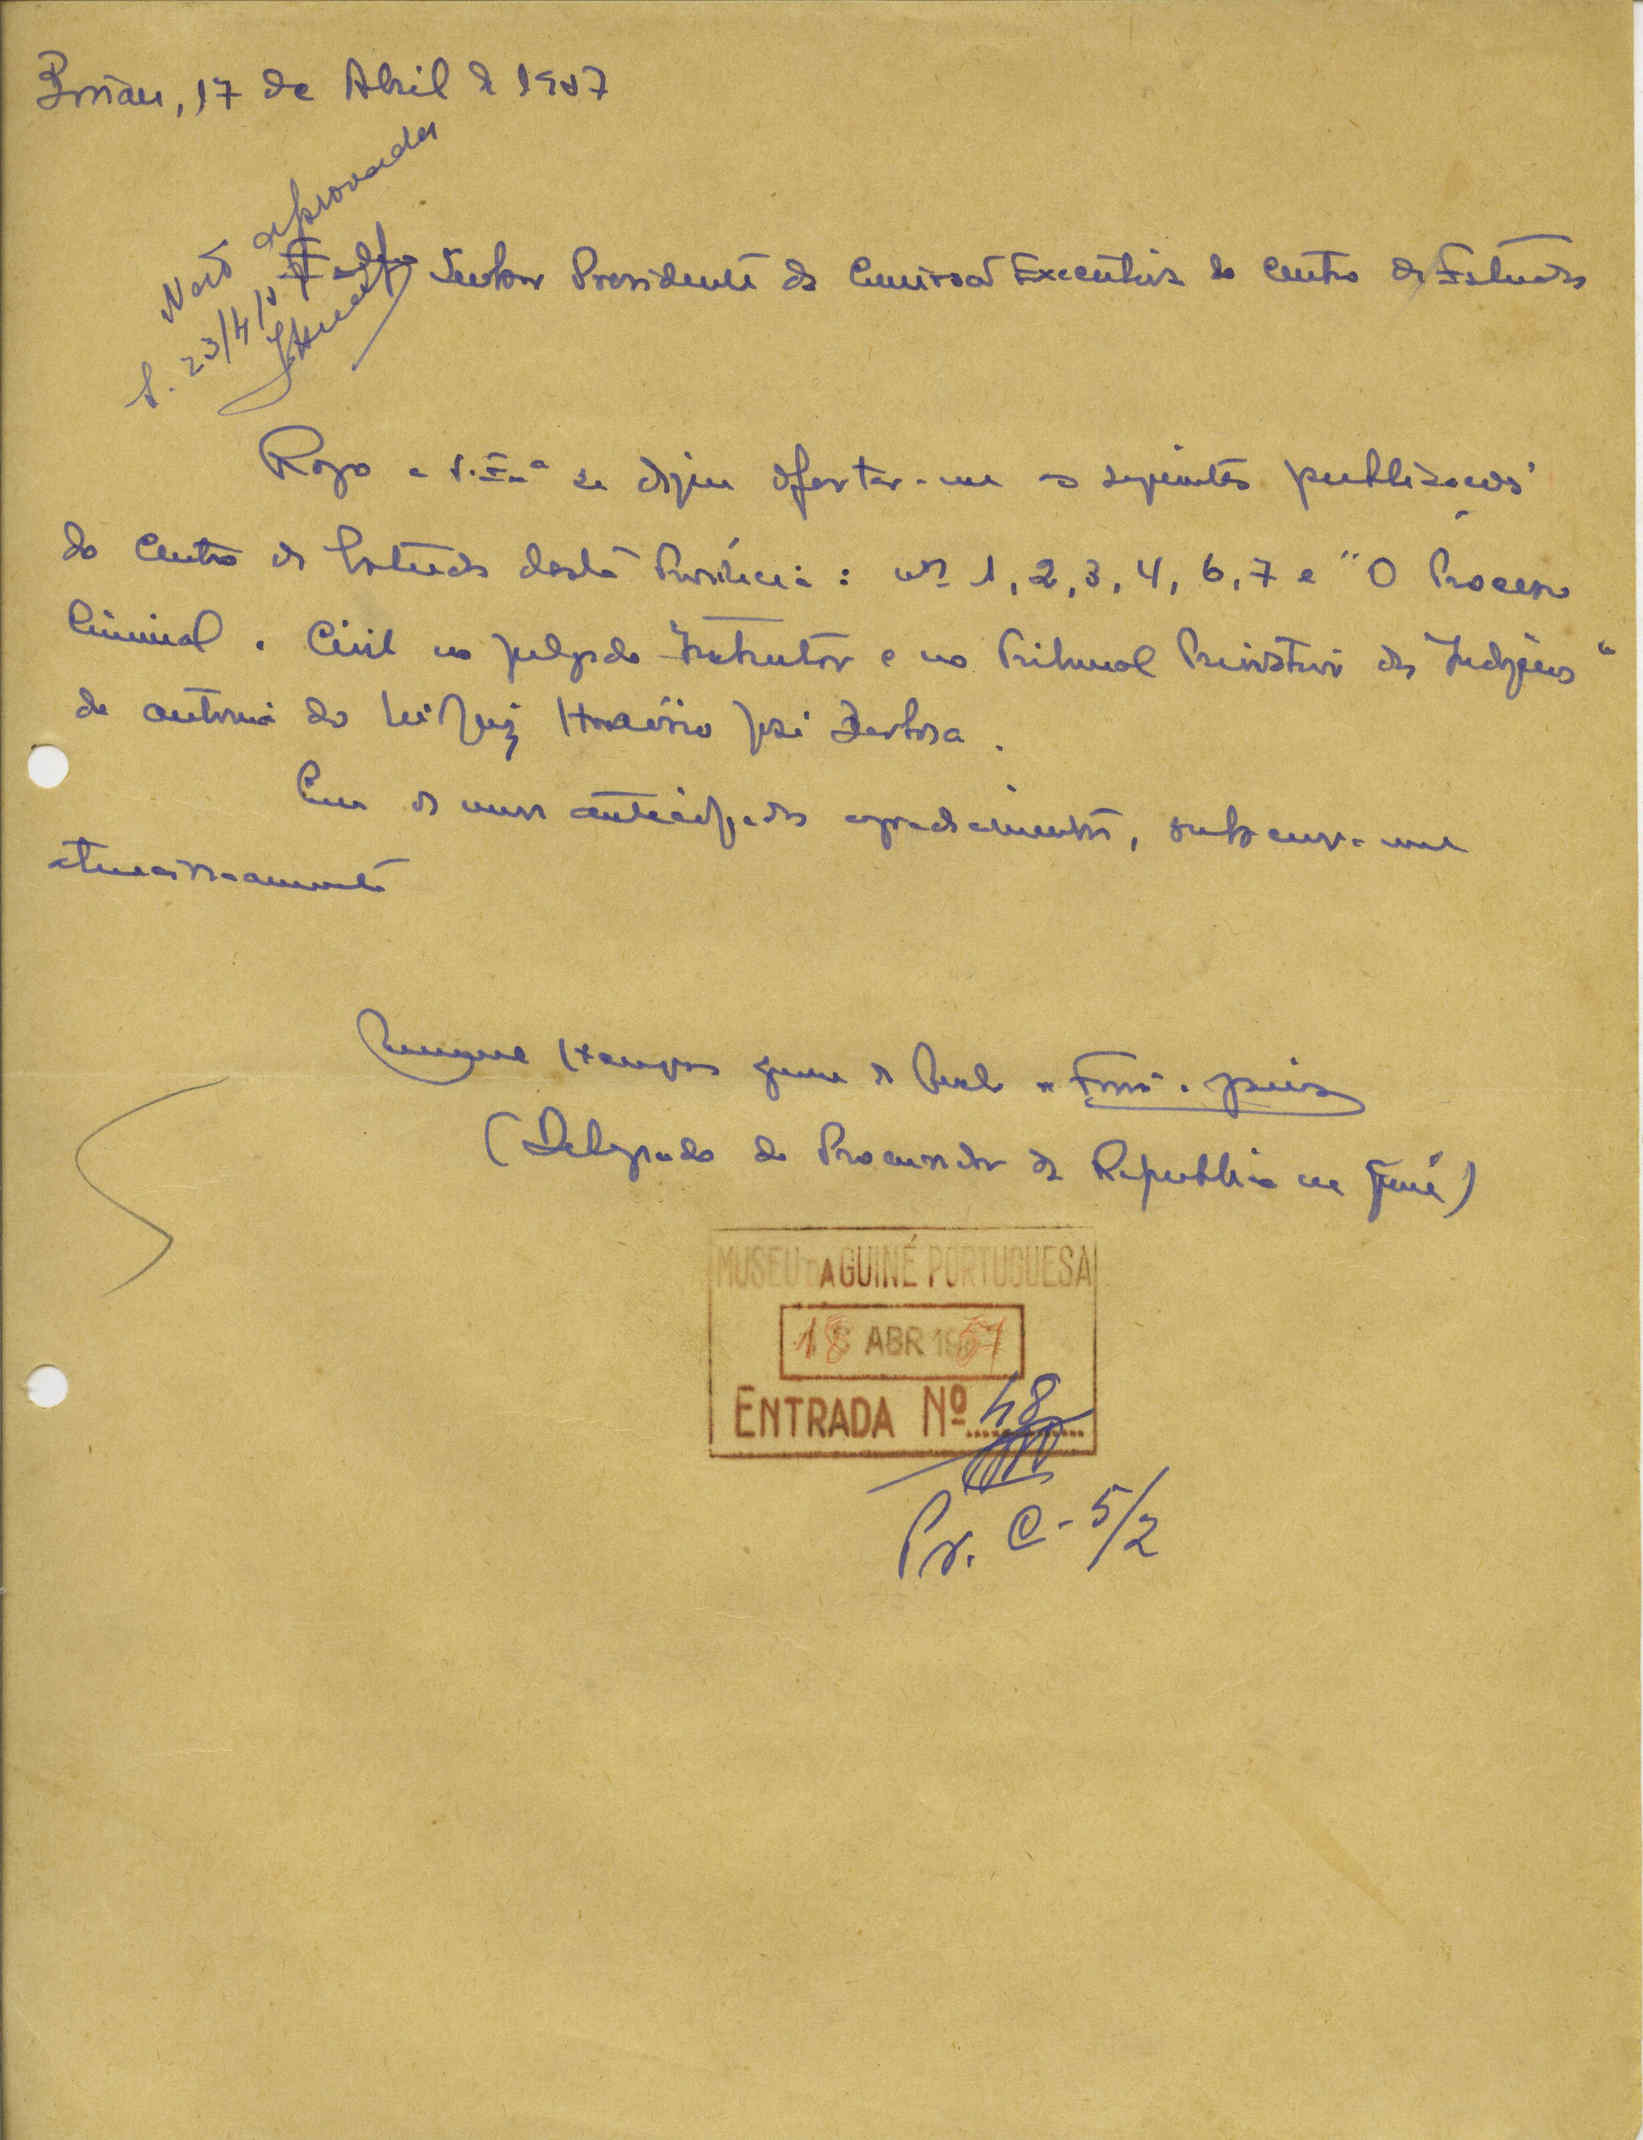 Bissau, 17 de Abril de 1957
Não aprovada
S. 23/4/57
Senhor Presidente da Comissão Executiva do Centro de Estudos
Rogo a V. Exª se digne ofertar-me as seguintes publicações
do Centro de Estudos desta Província: nºs 1, 2, 3, 4, 6, 7 e "O Processo
Criminal e Civil no Julgado Instrutor e no Tribunal Privativo dos Indígenas"
de autoria do Juiz Horácio José Barbosa.
Com os meus antecipados agradecimentos, subscrevo-me
atenciosamente
(Delegado do Procurador da República na Guiné)
MUSEU DA GUINÉ PORTUGUESA
18 ABR 1957
ENTRADA Nº 48
Pr. C-5/2